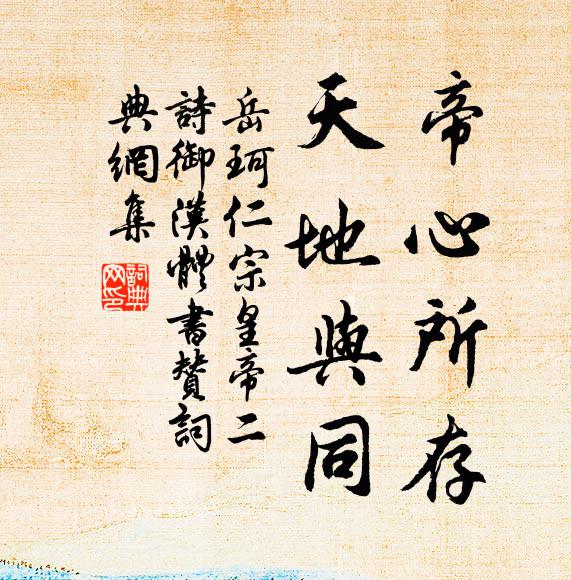 帝心所存
天地與同
岳珂仁宗皇帝二
詩御漢體書贊詞
典網集
詞典網印